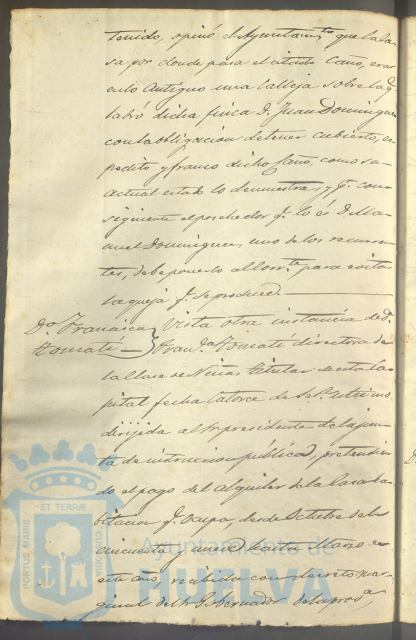 tenido, opinó el Ayuntamto que la ca-
sa por donde pasa el citado Caño, era
en lo Antiguo una calleja sobre la q.
labró dicha finca D. Juan Dominguez
con la obligacion de tener cubierto, es-
pedito y franco dicho Caño, como su
actual estado lo demuestra, y q. con-
siguiente el poseedor q. lo és D. Ma-
nuel Dominguez, uno de los recurren-
tes, debe ponerlo al corrte para evitar
la queja q. se produce.
Da. Francisca Tomati
Vista otra instancia de Da.
Franca. Tomati directora de
la clase de Niñas titular de esta Ca-
pital fecha catorce de último
dirijida al Sr. presidente de la jun-
ta de instruccion pública, pretendien-
do el pago del alquiler de la casa ha-
bitacion q. ocupa, desde Octubre de
cincuenta y nueve hasta Marzo de
este año, recibida con decreto mar-
ginal del Sr. Gobernador de la prova,
PORTUS MARIS ET TERRÆ CUSTODIA
Ayuntamiento de
HUELVA